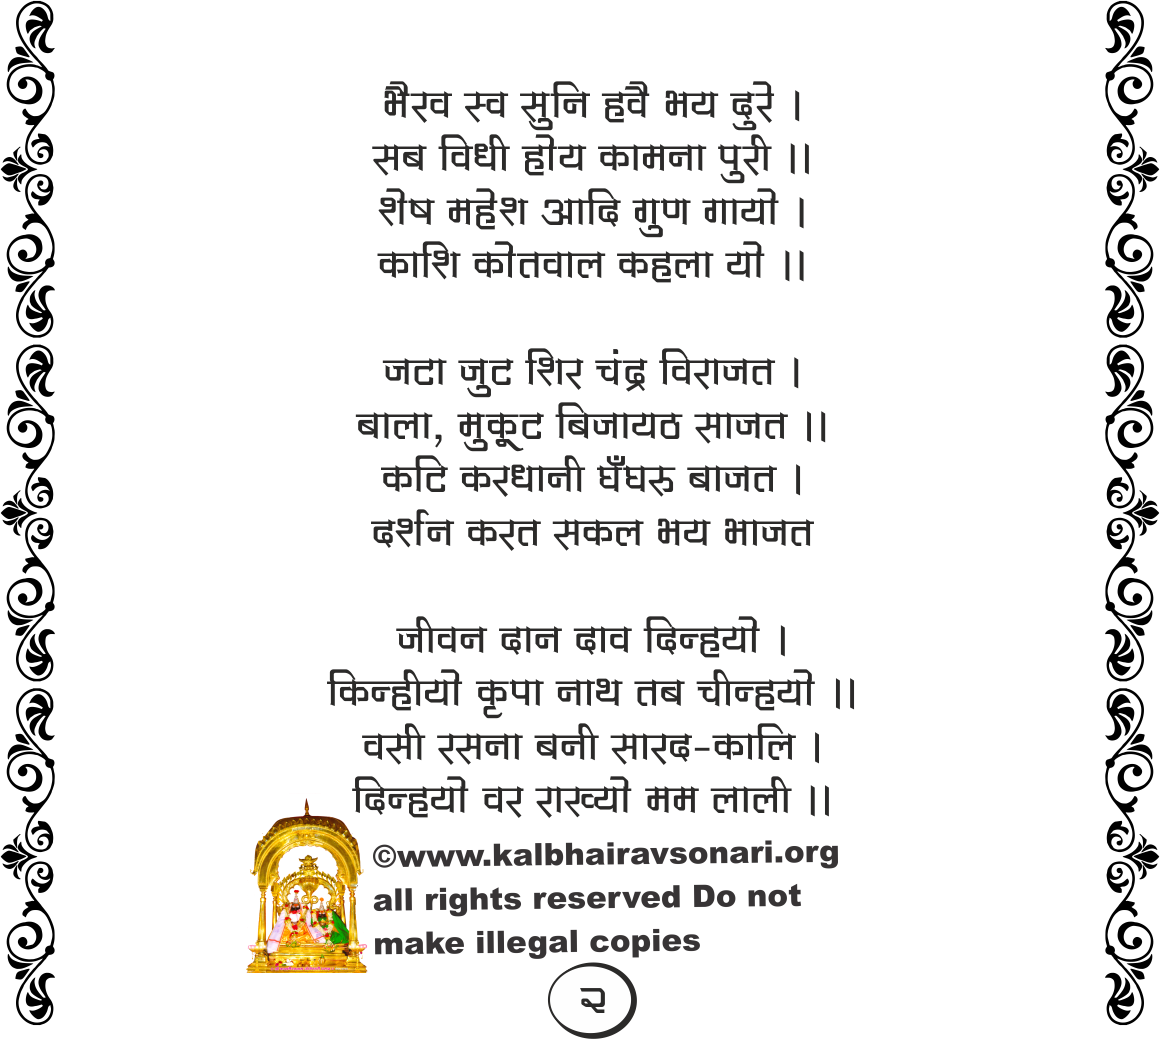 भैरव स्व सुनि हवै भय दुरे ।
सब विधी होय कामना पुरी ।।
शेष महेश आदि गुण गायो ।
काशि कोतवाल कहला यो ।।
जटा जुट शिर चंद्र विराजत ।
बाला, मुकूट बिजायठ साजत ।।
कटि करधानी घँघरु बाजत ।
दर्शन करत सकल भय भाजत
जीवन दान दाव दिन्हयो ।
किन्हीयो कृपा नाथ तब चीन्हयो ।।
वसी रसना बनी सारद-कालि ।
दिन्हयो वर राख्यो मम लाली ।।
©www.kalbhairavsonari.org
all rights reserved Do not
make illegal copies
२